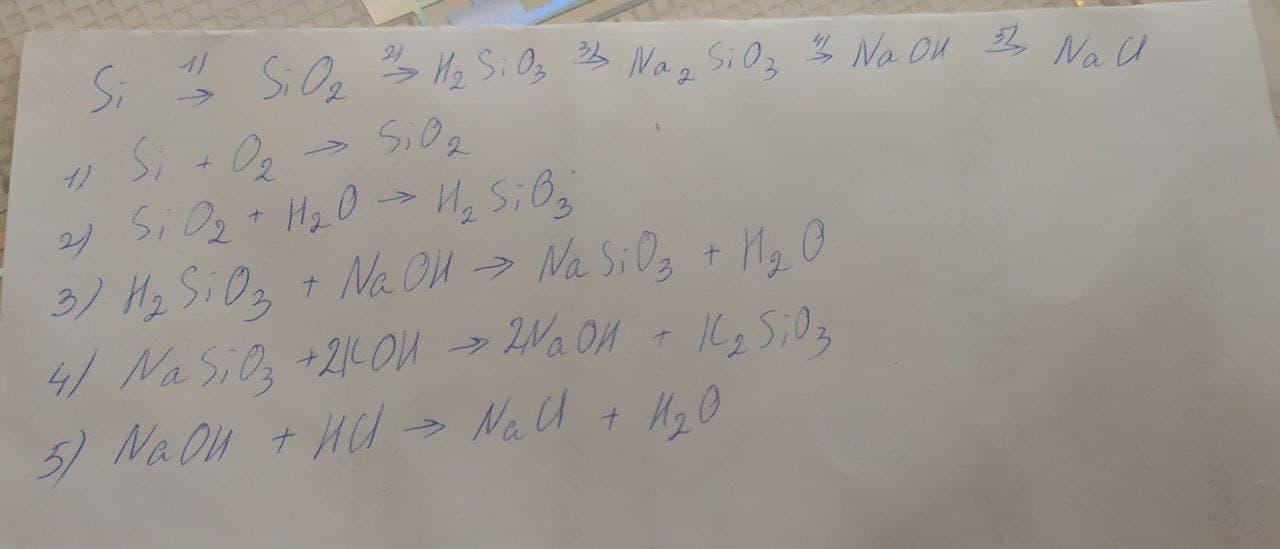 Si 1)→ SiO₂ 2)→ H₂SiO₃ 3)→ Na₂SiO₃ 4)→ NaOH 5)→ NaCl
1) Si + O₂ → SiO₂
2) SiO₂ + H₂O → H₂SiO₃
3) H₂SiO₃ + NaOH → NaSiO₃ + H₂O
4) NaSiO₃ + 2KOH → 2NaOH + K₂SiO₃
5) NaOH + HCl → NaCl + H₂O